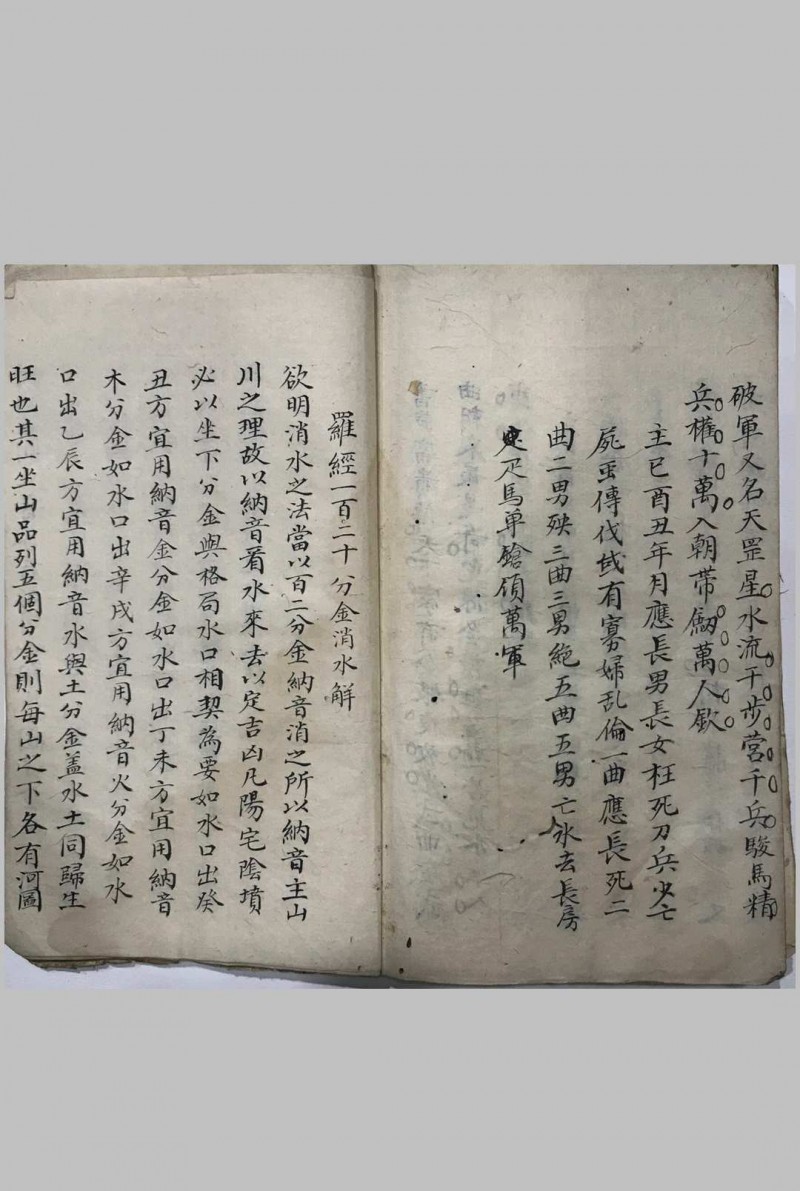 破軍又名天罡星水流千步营千兵駿馬精
兵權十萬入朝帶劒萬人欽
主巳酉丑年月應長男長女枉死刀兵少亡
屍虫傳伐域有寡婦乱倫一曲應長死二
曲二男殃三曲三男絶五曲五男亡水去長房
定疋馬单鎗傾萬軍
羅經一百二十分金消水解
欲明消水之法當以百二分金納音消之所以納音主山
川之理故以納音看水來去以定吉凶凡陽宅陰墳
必以坐下分金與格局水口相契為要如水口出癸
丑方宜用納音金分金如水口出丁未方宜用納音
木分金如水口出辛戌方宜用納音火分金如水
口出乙辰方宜用納音水與土分金盖水土同歸生
旺也其一坐山品列五個分金則每山之下各有河圖